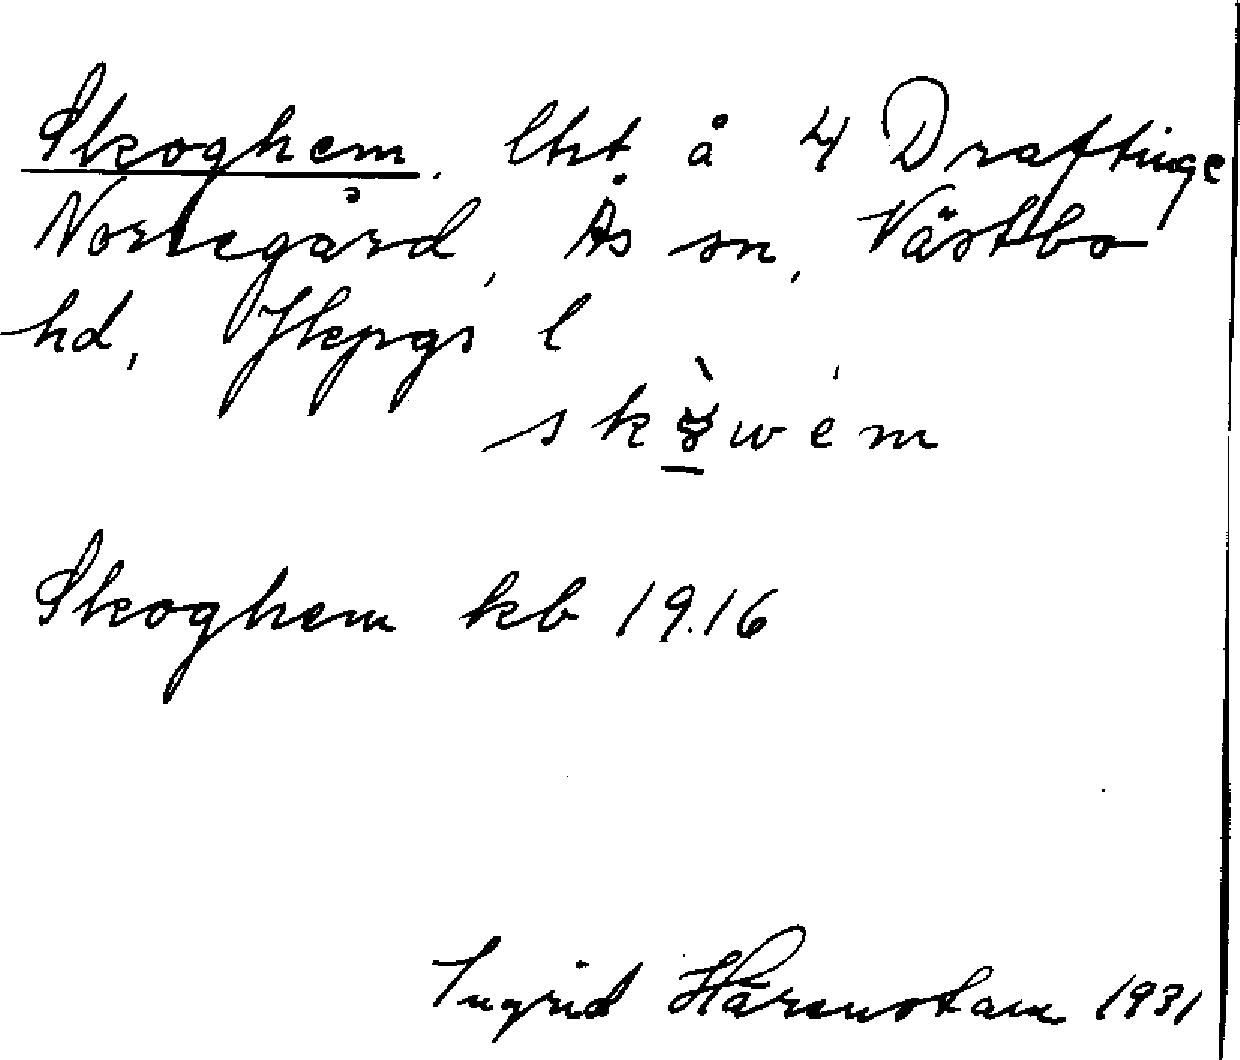 Skoghem. lht å 4 Draftinge
Norregård, Ås sn, Västbo
hd, Jkpgs l
Skoghem kb 1916
Ingrid Härenstam 1931